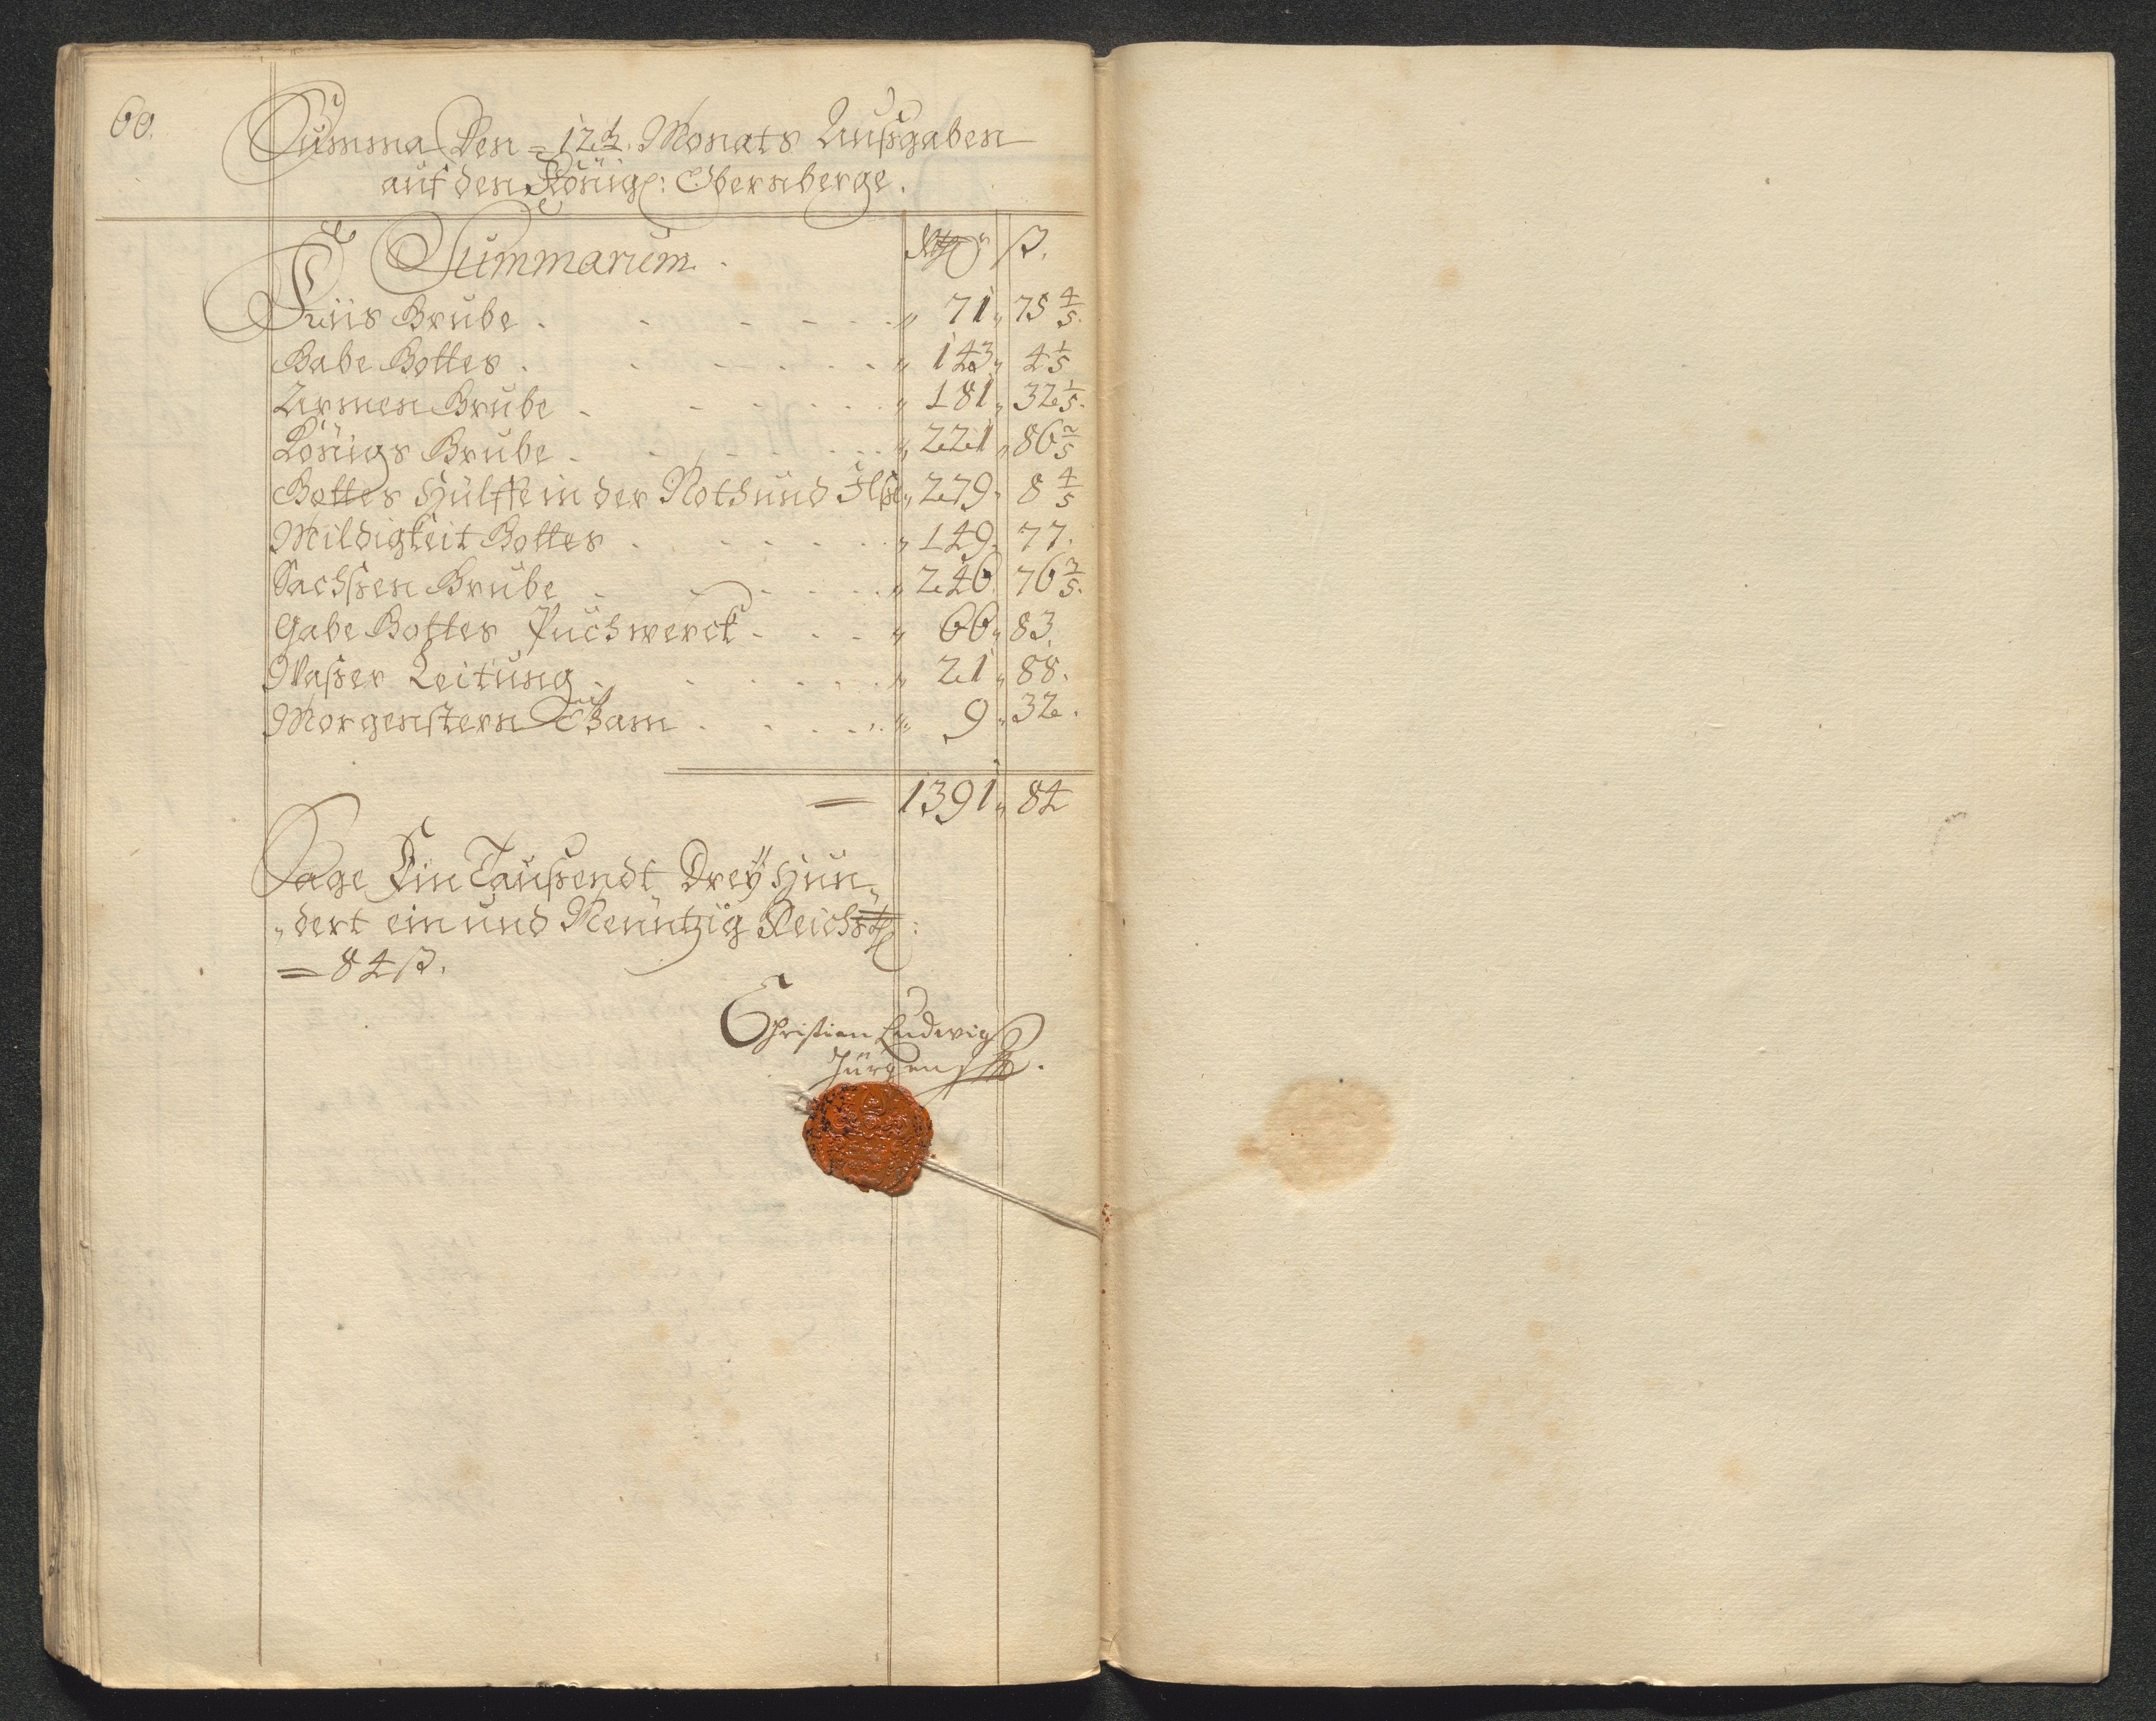 60.
Summa Den = 12ten Monats Ausgaben
auf den Königl: Obernberge.
Summarium. Rthr ß.
Juus Grube . - - - - - " 71 " 75 4/5.
Gabe Gottes . - - - - - " 143 " 4 1/5
Armen Grube - - - - - " 181 " 32 1/5.
Königs Grube - - - - - " 221 " 86 2/5
Gottes Hülffe in der Noth und " 279 " 8 4/5
Mildigkeit Gottes - - - - - " 149 " 77.
Sachssen Grube - - - - - " 246 76 3/5.
Gabe Gottes Puchwerck - - - " 66 " 83.
Wasser Leitung - - - - - " 21 " 88.
Morgenstern Tham - - - - - " 9 " 32.
= 1391 " 84
Sage Ein Taussendt Drey Hun-
" dert ein und Neüntzig Reichsthlr:
= 84 ß.
Christian Ludewig
Jürgens